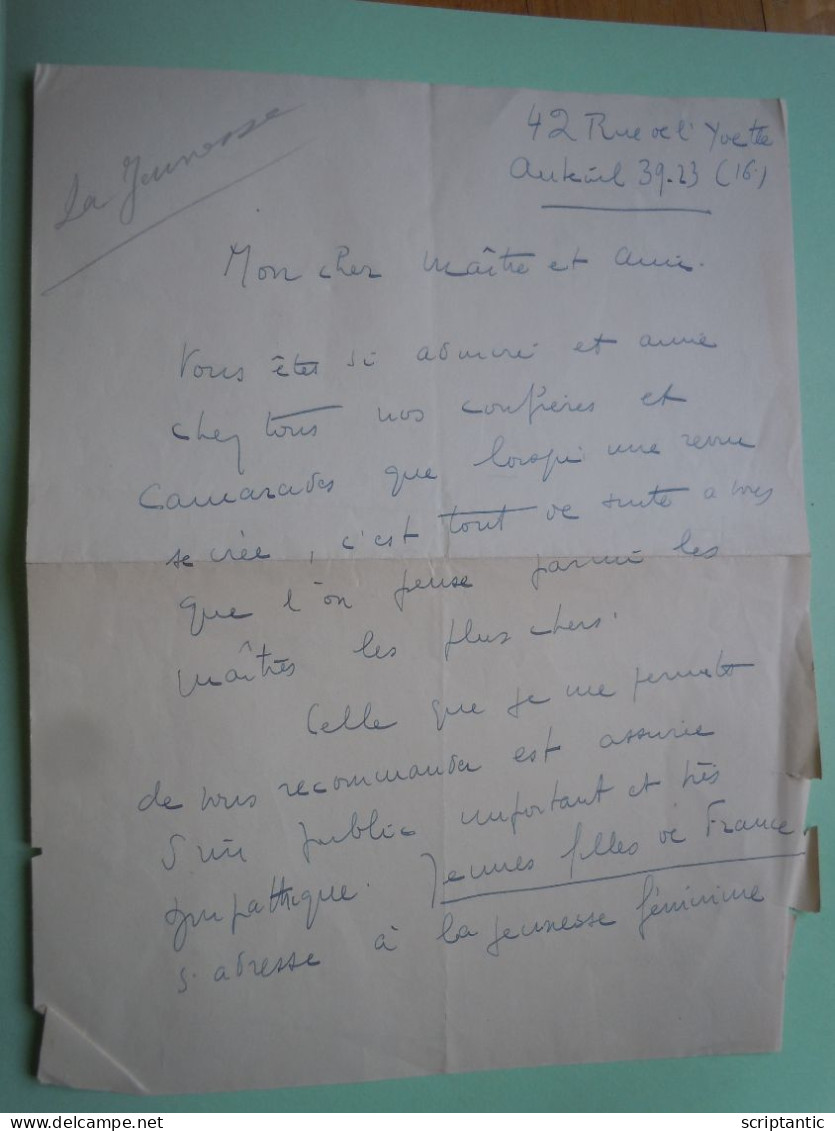 La Jeunesse
42 Rue de l'Yvette
Auteuil 39-23 (16)
Mon cher Maître et Ami.
Vous êtes si admiré et aimé
chez tous nos confrères et
Camarades que lorsqu'une revue
se crée, c'est tout de suite à vous
que l'on pense parmi les
Maîtres les plus chers.
Celle que je me permets
de vous recommander est assurée
d'un public important et très
sympathique. Jeunes filles de France
s'adresse à la jeunesse féminine
scriptantic